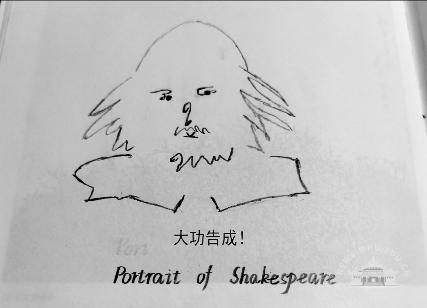 大功告成!
Portrait of Shakespeare